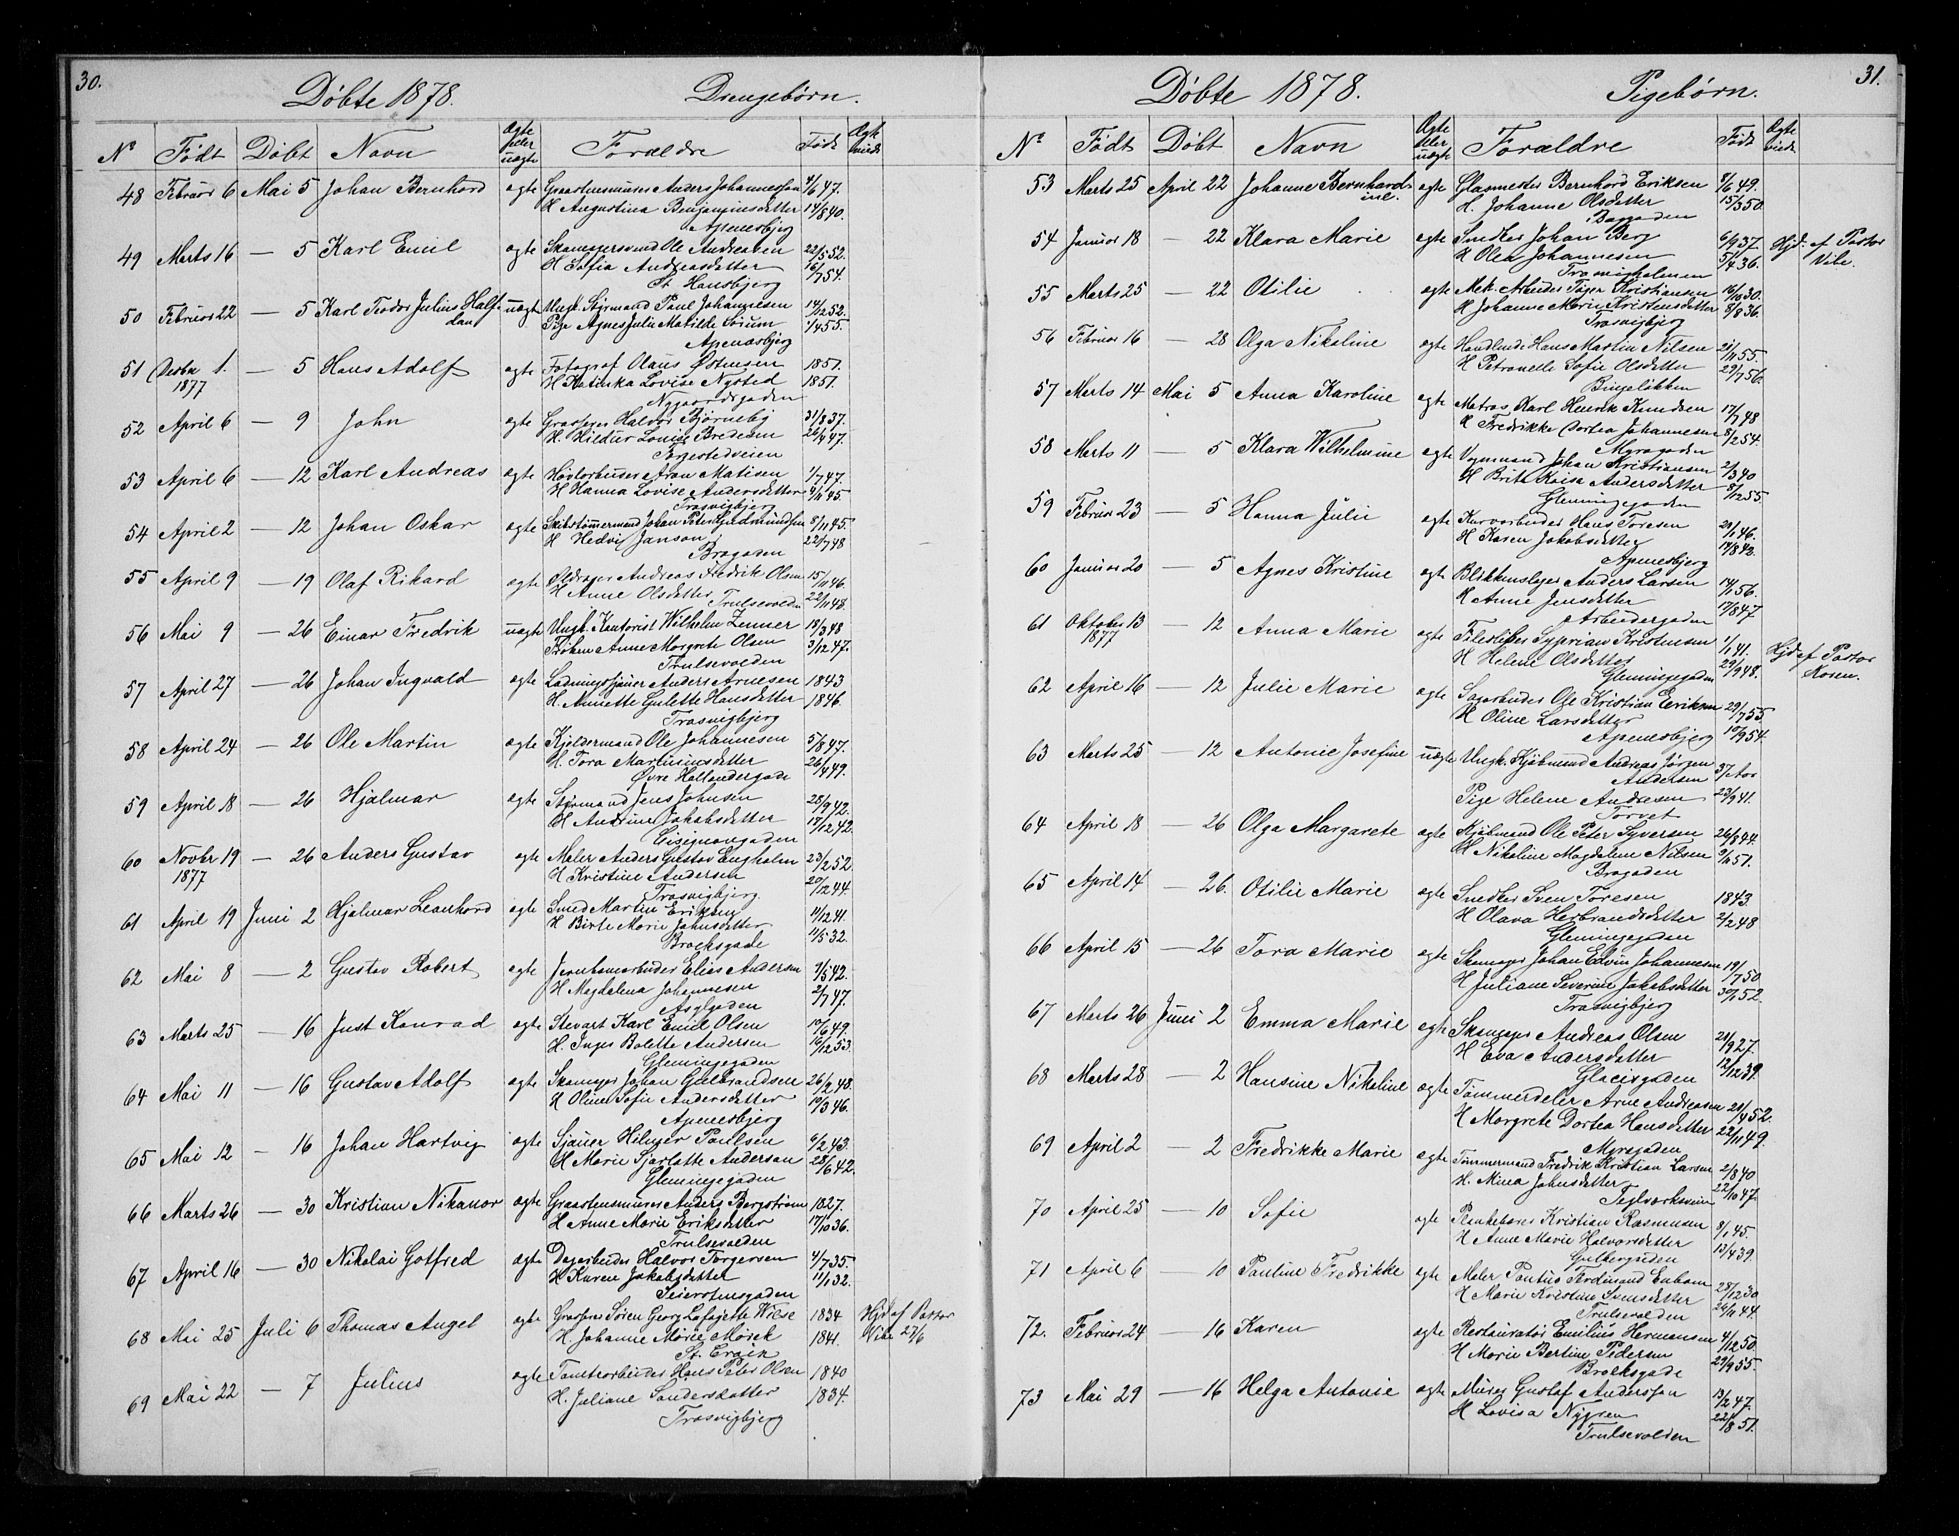 30.
Döbte 1878. Drengebörn.
No Födt Döbt Navn Ægte eller uægte Forældre Födt
48 Februar 6 Mai 5 Johan Bernhard ægte Graastensmurer Anders Johannessen 4/6 47.
H Augustina Benjaminsdatter 14/8 40.
Apenesbjerg
49 Marts 16 — 5 Karl Emil ægte Skomagersvend Ole Andreasen 22/5 52.
H Sofia Andreasdatter 16/7 54.
St Hansbjerg
50 Februar 22 — 5 Karl Teodor Julius Half- uægte Ungk. Styrmand Paul Johannesen 14/2 52.
dan Pige Agnes Julie Matilde Sörum 1/4 55.
Apenæsbjerg
51 Desbr 1. — 5 Hans Adolf ægte Fotograf Claus Östensen 1851.
1877 H Katinka Lovise Nysted 1851.
Nygaardsgaden
52 April 6 — 9 John ægte Grosserer Halvor Bjørneby 31/8 37.
H. Hildur Louise Bredesen 47.
53 April 6 — 12 Karl Andreas ægte Aron Matisen 1/7 47.
H Hanna Lovise Andersdatter 4/11 45
Trosvigbjerg
54 April 2 — 12 Johan Oskar ægte Skibstömmermand Johan Peter Gudmundsen 8/11 45.
H Hedvig Janson 22/7 48
Brogaden
55 April 9 — 19 Olaf Rikard ægte Oldrager Andreas Fredrik Olsen 15/11 46.
H Anne Olsdatter Trulsevolden 22/11 48.
56 Mai 9 — 26 Einar Fredrik uægte Ungk. Kontorist Wilhelm Zenner 18/3 48
Fröken Anne Margrete Olsen 3/12 47.
Trulsevolden
57 April 27 — 26 Johan Ingvald ægte Ladningssjauer Anders Arnesen 1843
H. Annette Gulette Hansdatter 1846.
Trosvigbjerg
58 April 24 — 26 Ole Martin ægte Kjeldermand Ole Johannesen 5/8 47.
H. Tora Martinusdatter 26/4 49.
Övre Hollændergade
59 April 18 — 26 Hjalmar ægte Styrmand Jens Johnsen 28/9 42.
H Andrine Jakobsdatter 17/12 42.
Cicignongaden
60 Novbr 19 — 26 Anders Gustav ægte Maler Anders Gustav Engholm 23/2 52.
1877 H Kristine Andersen 20/12 44.
Trosvigbjerg.
61 April 19 Juni 2 Hjalmar Leonhard ægte Smed Martin Eriksen 11/12 41.
H Birte Marie Johnsdatter 11/5 32.
Brochsgade
62 Mai 8 — 2 Gustav Robert ægte Jernbanearbeider Elias Andersen 9/5 42.
H Magdalena Johannesen 2/7 47.
Asylgaden
63 Marts 25 — 16 Just Konrad ægte Stevart Karl Emil Olsen 10/6 49.
H. Inger Bolette Andersen 16/12 53.
Glemmingegaden
64 Mai 11 — 16 Gustav Adolf ægte Skomager Johan Gulbrandsen 26/2 48.
H Oline Sofie Andersdatter 10/3 46.
Apenesbjerg
65 Mai 12 — 16 Johan Hartvig ægte Sjauer Hilmer Paulsen 6/2 43.
H Marie Sjarlotte Andersen 28/6 42.
Glemmingegaden
66 Marts 26 — 30 Kristian Nikanor ægte Graastensmurer Anders Bergström 1827.
H Anne Marie Eriksdatter 17/10 36.
Trulsevolden
67 April 16 — 30 Nikolai Gotfred ægte Dagarbeider Halvor Torgersen 4/7 35.
H Karen Jakobsdatter 11/1 32.
Seierstensgaden
68 Mai 25 Juli 6 Thomas Angel ægte Grosserer Sören Georg Lafayette Wiese 1834 Hjd af Pastor
H. Johanne Marie Mörch 1841. Vibe 27/6
St. Croix
69 Mai 22 — 7 Julius ægte Tomtearbeider Hans Peter Olsen 1840
H. Juliane Sandersdatter 1834.
Trosvigbjerg
31.
Döbte 1878. Pigebörn.
No Födt Döbt Navn Ægte eller uægte Forældre Födt
53 Marts 25 April 22 Johanne Bernhard- ægte Glasmester Bernhard Eriksen 9/6 49.
ine. H. Johanne Olsdatter 15/3 50
54 Januar 18 — 22 Klara Marie ægte Snedker Johan Berg 6/9 37. Hjd. af Pastor
H Olea Johannesen 5/4 36. Vibe.
Trosvigholmen
55 Marts 25 — 22 Otilie ægte Mek. Arbeider Tiger Kristiansen 16/10 30.
H Johanne Marie Kristensdatter 8/8 36.
Trosvigbjerg
56 Februar 16 — 28 Olga Nikoline ægte Handlende Hans Martin Nilsen 21/11 55.
H Petronelle Sofie Olsdatter 29/7 56.
Bingelökken
57 Marts 14 Mai 5 Anna Karoline ægte Matros Karl Henrik Knudsen 17/7 48
H Fredrikke Dortea Johannesen 8/2 54.
Myragaden
58 Marts 11 — 5 Klara Wilhelmine ægte Vognmand Johan Kristiansen 2/3 40
H Brita Kaisa Andersdatter 8/12 55.
Glemmingegaden
59 Februar 23 — 5 Hanna Julie ægte Hans Toresen 46.
H Karen Jakobsdatter 14/8 42.
Apenesbjerg
60 Januar 20 — 5 Agnes Kristine ægte Blikkenslager Anders Larsen 14/1 56.
H Anne Jensdatter 17/8 47
Arbeidergaden
61 Oktober 13 — 12 Anna Marie ægte Filesliber Syprian Kristensen 1/1 41. Hjd af Pastor
1877 H Helene Olsdatter 29/9 48. Rosen.
Glemmingegaden
62 April 16 — 12 Julie Marie ægte Sagarbeider Ole Kristian Eriksen 29/7 55.
H Oline Larsdatter 10/9 54.
Apenesbjerg
63 Marts 25 — 12 Antonie Josefine uægte Ungk. Kjöbmand Andreas Jörgen
Andersen 37 Aar
Pige Helene Andresen 23/9 41.
Torvet
64 April 18 — 26 Olga Margarete ægte Kjöbmand Ole Peter Syversen 26/8 44.
H Nikoline Magdalene Nilsen 9/11 51.
Brogaden
65 April 14 — 26. Otilie Marie ægte Snedker Sven Toresen 1843.
H Olava Herbrandsdatter 2/2 48
Glemmingegaden
66 April 15 — 26 Tora Marie ægte Skomager Johan Edvin Johannesen 19/7 50.
H Juliane Severine Jakobsdatter 30/1 52.
Trosvigbjerg
67 Marts 26 Juni 2 Emma Marie ægte Skomager Andreas Olsen 21/9 27.
H Eva Andersdatter 12/12 39.
Glacisgaden
68 Marts 28 — 2 Hansine Nikoline ægte Tömmerdeler Arne Andreasen 21/4 52.
H Margrete Dortea Hansdatter 22/11 49.
Myragaden
69 April 2 — 2 Fredrikke Marie ægte Tömmermand Fredrik Kristian Larsen 2/8 40
H. Mina Johnsdatter 22/10 47.
Teglværksveien
70 April 25 — 10 Sofie ægte Plankebærer Kristian Rasmusen 8/1 45.
H Anne Marie Halvorsdatter 13/4 39.
Gulbergsiden
71 April 6 — 10 Pauline Fredrikke ægte Maler Pontus Ferdinand Enbom 28/12 30
H Marie Kristine Svensdatter 26/11 44.
Trulsevolden
72. Februar 24 — 16 Karen ægte Restauratör Emilius Hermansen 4/12 50.
H Marie Bertine Pedersen 29/9 55.
Brochsgade
73 Mai 29 — 16 Helga Antonie ægte Murer Gustaf Anderssson 13/2 47.
H Lovisa Nygren 22/8 51.
Trulsevolden